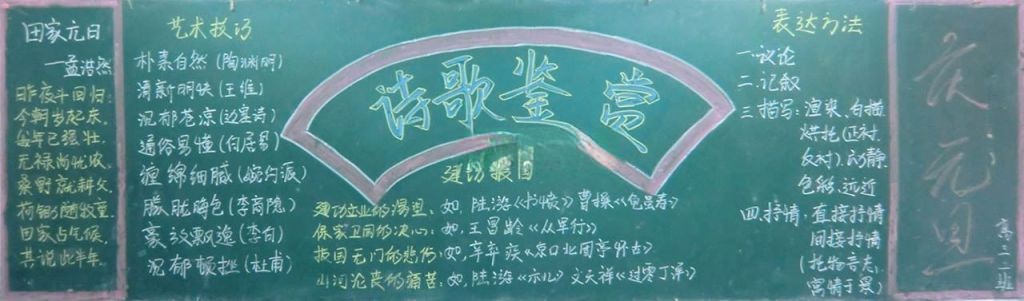 田家元日
—孟浩然
昨夜斗回归,
今朝岁起东。
每年已强壮,
无禄尚忧农。
桑野就耕父,
荷锄随牧童。
田家占气候,
其说此年年。
艺术技巧
朴素自然(陶渊明)
清新明快(王维)
沉郁苍凉(边塞诗)
通俗易懂(白居易)
缠绵细腻(婉约派)
朦胧暗色(李商隐)
豪放飘逸(李白)
沉郁顿挫(杜甫)
诗歌鉴赏
建功报国
建功立业的渴望:如 陆游《书愤》曹操《龟虽寿》
保家卫国的决心:如,王昌龄《从军行》
报国无门的悲伤:如,辛弃疾《京口北固亭怀古》
山河沦丧的痛苦:如,陆游《示儿》文天祥《过零丁洋》
表达方法
一.议论
二.记叙
三.描写:渲染、白描
烘托(正衬、
反衬)、动静、
色彩、远近
四.抒情:直接抒情
间接抒情
(托物言志,
寓情于景)
庆元旦
高二二班